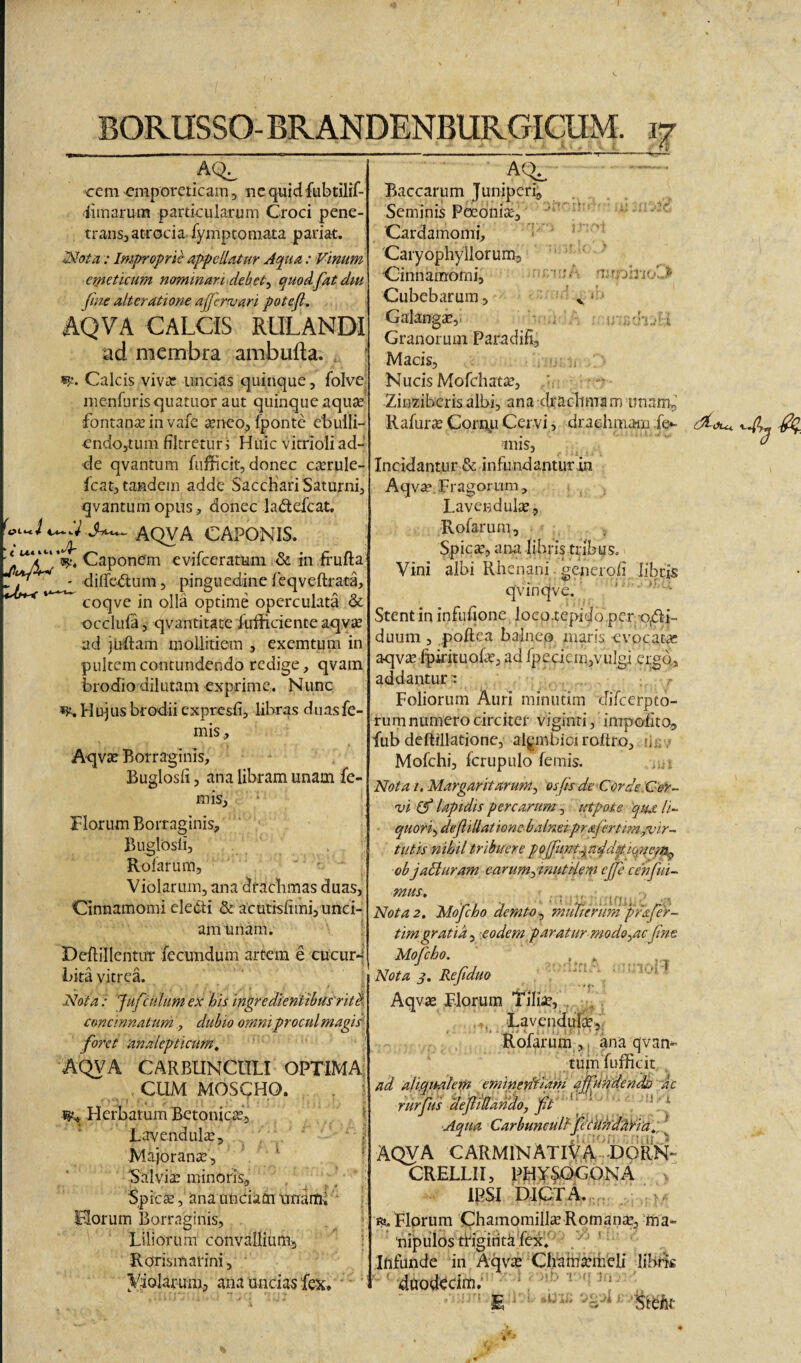 BORUSSO-BRANDENBURGICUM. 17
AQ.
cem emporeticam, ne quid ſubtiliſ-
ſimarum particularum Croci pene-
trans, atrocia ſymptomata pariat.
Nota: Improprie appellatur Aqua: Vinum
emeticum nominari debet, quod ſat diu
ſine alteratione aſſervari poteſt.
AQVA CALCIS RULANDI
ad membra ambuſta.
℞. Calcis vivæ uncias quinque, ſolve
menſuris quatuor aut quinque aquæ
fontanæ in vaſe æneo, ſponte ebulli-
endo, tum filtretur; Huic vitrioli ad-
de qvantum ſufficit, donec cærule-
ſcat, tandem adde Sacchari Saturni,
qvantum opus, donec lacteſcat.
AQVA CAPONIS.
℞. Caponem eviſceratum & in fruſta
diſſectum, pinguedine ſeqveſtrata,
coqve in olla optime operculata &
occluſa, qvantitate ſufficiente aqvæ
ad juſtam mollitiem, exemtum in
pultem contundendo redige, qvam
brodio dilutam exprime. Nunc
℞. Hujus brodii expresſi, libras duas ſe-
mis,
Aqvæ Borraginis,
Buglosſi, ana libram unam ſe-
mis,
Florum Borraginis,
Buglosſi,
Roſarum,
Violarum, ana drachmas duas,
Cinnamomi electi & acutisſimi, unci-
am unam.
Deſtillentur ſecundum artem e cucur-
bita vitrea.
Nota: Juſculum ex his ingredientibus rite
concinnatum, dubio omni procul magis
foret analepticum.
AQVA CARBUNCULI OPTIMA
CUM MOSCHO.
℞. Herbatum Betonicæ,
Lavendulæ,
Majoranæ,
Salviæ minoris,
Spicæ, ana unciam unam.
Florum Borraginis,
Liliorum convallium,
Rorismarini,
Violarum, ana uncias ſex.
AQ.
Baccarum Juniperi,
Seminis Pœoniæ,
Cardamomi,
Caryophyllorum,
Cinnamomi,
Cubebarum,
Galangæ,
Granorum Paradiſi,
Macis,
Nucis Moſchatæ,
Zinziberis albi, ana drachmam unam,
Raſuræ Cornu Cervi, drachmam ſe-
mis,
Incidantur & infundantur in
Aqvæ Fragorum,
Lavendulæ,
Roſarum,
Spicæ, ana libris tribus.
Vini albi Rhenani generoſi libris
qvinqve.
Stent in infuſione loco tepido per octi-
duum, poſtea balneo maris evocatæ
aqvæ ſpirituoſæ, ad ſpeciem, vulgi ergo,
addantur:
Foliorum Auri minutim diſcerpto-
rum numero circiter viginti, impoſito,
ſub deſtillatione, alembici roſtro,
Moſchi, ſcrupulo ſemis.
Nota 1. Margaritarum, osſis de Corde Cer-
vi & lapidis percarum, utpote quæ li-
quori, deſtillatione balnei præſertim, vir-
tutis nihil tribuere poſſunt, additionem,
ob jacturam earum, inutilem eſſe cenſui-
mus.
Nota 2. Moſcho demto, mulierum præſer-
tim gratia, eodem paratur modo, ac ſine
Moſcho.
Nota 3. Reſiduo
Aqvæ Florum Tiliæ,
Lavendulæ,
Roſarum, ana qvan-
tum ſufficit
ad aliqualem eminentiam affundendo ac
rurſus deſtillando, fit
Aqua Carbunculi ſecundaria.
AQVA CARMINATIVA DORN-
CRELLII, PHYSOGONA
IPSI DICTA.
℞. Florum Chamomillæ Romanæ, ma-
nipulos triginta ſex.
Infunde in Aqvæ Chamæmeli libris
duodecim.
E Stent